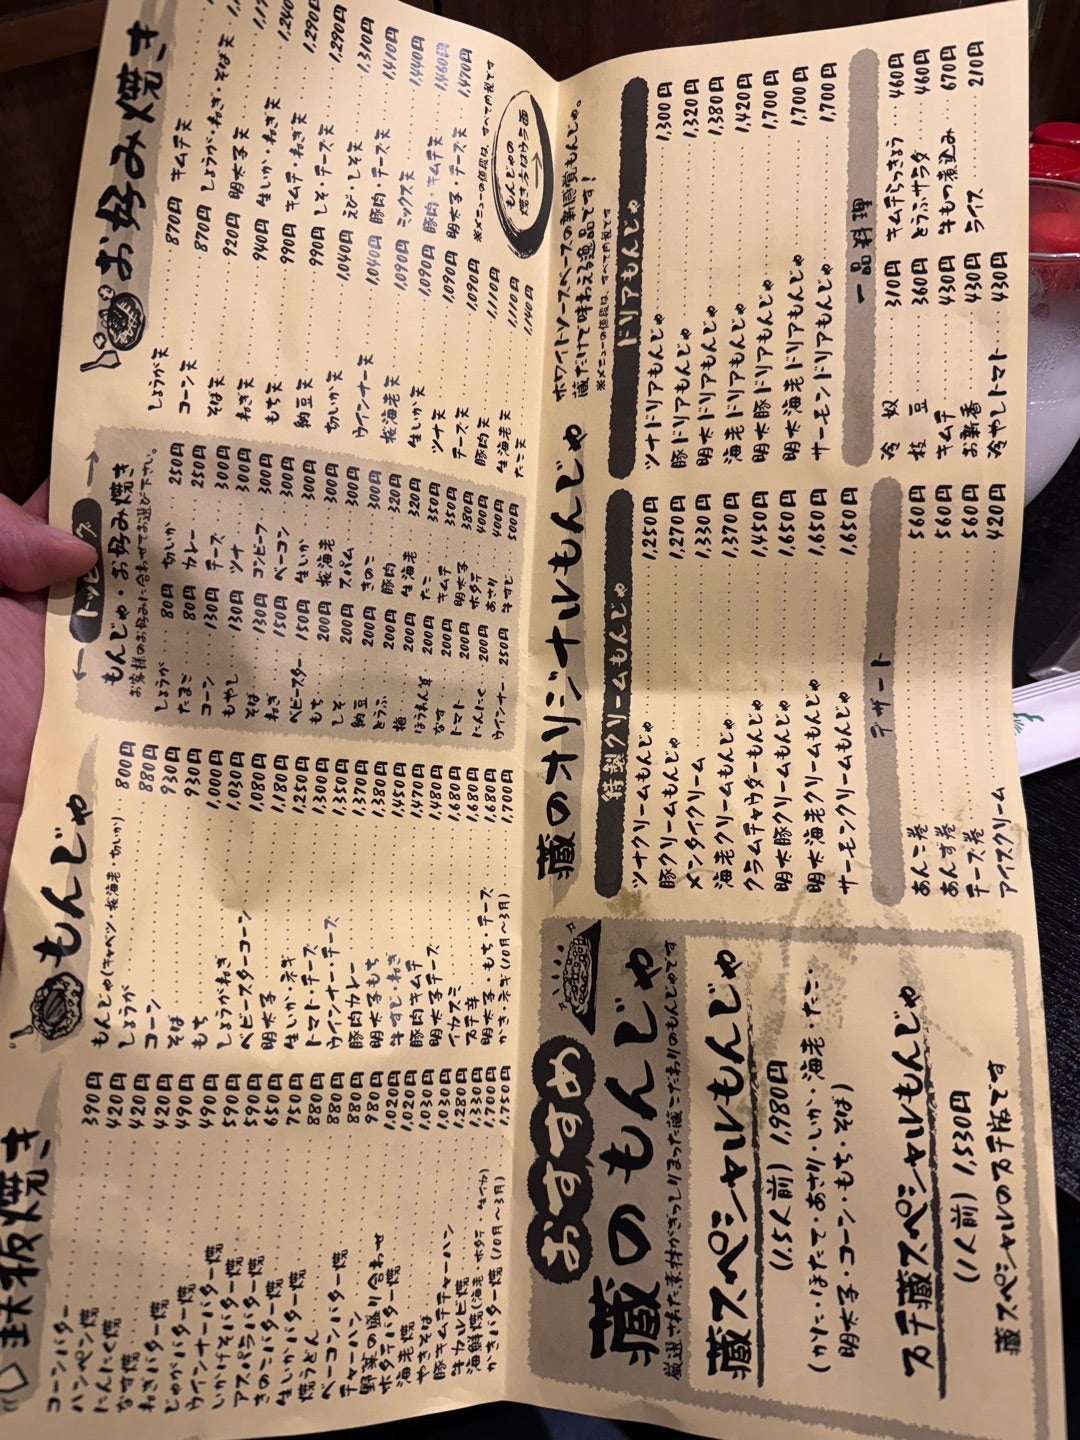 鉄板焼き
コーンバター 390円
ハンペン焼 420円
にんにく焼 420円
なす焼 420円
ねぎバター焼 490円
じゃがバター焼 490円
ウインナーバター焼 590円
いかげそバター焼 590円
アスパラバター焼 650円
きのこバター焼 750円
生いかバター焼 880円
焼うどん 880円
ベーコンバター焼 880円
チャーハン 980円
野菜の盛り合わせ 1,020円
ホタテバター焼 1,020円
海老焼 1,030円
やきそば 1,030円
豚キムチチャーハン 1,280円
牛カルビ焼 1,330円
海鮮焼(海老・ホタテ・生イカ) 1,700円
かきバター焼(10月〜3月) 1,750円
もんじゃ
もんじゃ(キャベツ・桜海老・切いか) 800円
しょうが 880円
コーン 930円
そば 930円
もち 1,000円
しょうがねぎ 1,030円
ベビースターコーン 1,080円
明太子 1,180円
生いか・ネギ 1,250円
トマト・チーズ 1,300円
ウインナー・チーズ 1,350円
豚肉カレー 1,370円
明太子もち 1,380円
牛すじ・ねぎ 1,450円
豚肉キムチ 1,470円
明太子チーズ 1,480円
イカスミ 1,680円
1,680円
明太子・もち・チーズ 1,680円
かき・ネギ(10月〜3月) 1,700円
← トッピング →
もんじゃ・お好み焼き
お客様のお好みに合わせてお選び下さい。
しょうが 80円
たまご 80円
コーン 130円
もやし 130円
そば 130円
ねぎ 150円
ベビースター 150円
もち 200円
しそ 200円
納豆 200円
とうふ 200円
梅 200円
ほうれん草 200円
なす 200円
トマト 200円
にんにく 200円
ウインナー 250円
切いか 250円
カレー 250円
チーズ 300円
ツナ 300円
コンビーフ 300円
ベーコン 300円
生いか 300円
桜海老 300円
スパム 300円
きのこ 300円
豚肉 320円
生海老 320円
たこ 350円
キムチ 350円
明太子 380円
ホタテ 400円
あさり 400円
牛すじ 500円
お好み焼き
しょうが天 870円
コーン天 870円
そば天 920円
ねぎ天 940円
もち天 990円
納豆天 990円
切いか天 1,040円
ウインナー天 1,040円
桜海老天 1,090円
生いか天 1,090円
ツナ天 1,090円
チーズ天 1,090円
豚肉天 1,110円
生海老天 1,110円
たこ天 1,140円
キムチ天
しょうが・ねぎ・そば天
明太子天
生いか・ねぎ天 1,240円
キムチ・ねぎ天 1,290円
しそ・チーズ天 1,290円
えび・しそ天 1,310円
豚肉・チーズ天 1,410円
ミックス天 1,440円
豚肉・キムチ天 1,460円
明太子・チーズ天 1,470円
※メニューの値段は、すべて内税です
もんじゃの
焼き方はウラ面
おすすめ
蔵のもんじゃ
厳選された素材がぎっしりつまった蔵こだわりのもんじゃです
蔵スペシャルもんじゃ
(1.5人前) 1,980円
(かに・ほたて・あさり・いか・海老・たこ・
明太子・コーン・もち・そば)
プチ蔵スペシャルもんじゃ
(1人前) 1,530円
蔵スペシャルのプチ版です
蔵のオリジナルもんじゃ
ホワイトソースベースの新感覚もんじゃ。
蔵だけで味わえる逸品です!
※メニューの値段は、すべて内税です
特製クリームもんじゃ
ツナクリームもんじゃ 1,250円
豚クリームもんじゃ 1,270円
メンタイクリーム 1,330円
海老クリームもんじゃ 1,370円
クラムチャウダーもんじゃ 1,450円
明太豚クリームもんじゃ 1,650円
明太海老クリームもんじゃ 1,650円
サーモンクリームもんじゃ 1,650円
ドリアもんじゃ
ツナドリアもんじゃ 1,300円
豚ドリアもんじゃ 1,320円
明太ドリアもんじゃ 1,380円
海老ドリアもんじゃ 1,420円
明太豚ドリアもんじゃ 1,700円
明太海老ドリアもんじゃ 1,700円
サーモンドリアもんじゃ 1,700円
デザート
あんこ巻 560円
あんず巻 560円
チーズ巻 560円
アイスクリーム 420円
一品料理
冷奴 310円
枝豆 360円
キムチ 430円
お新香 430円
冷やしトマト 430円
キムチらっきょう 460円
とうふサラダ 460円
牛もつ煮込み 670円
ライス 210円